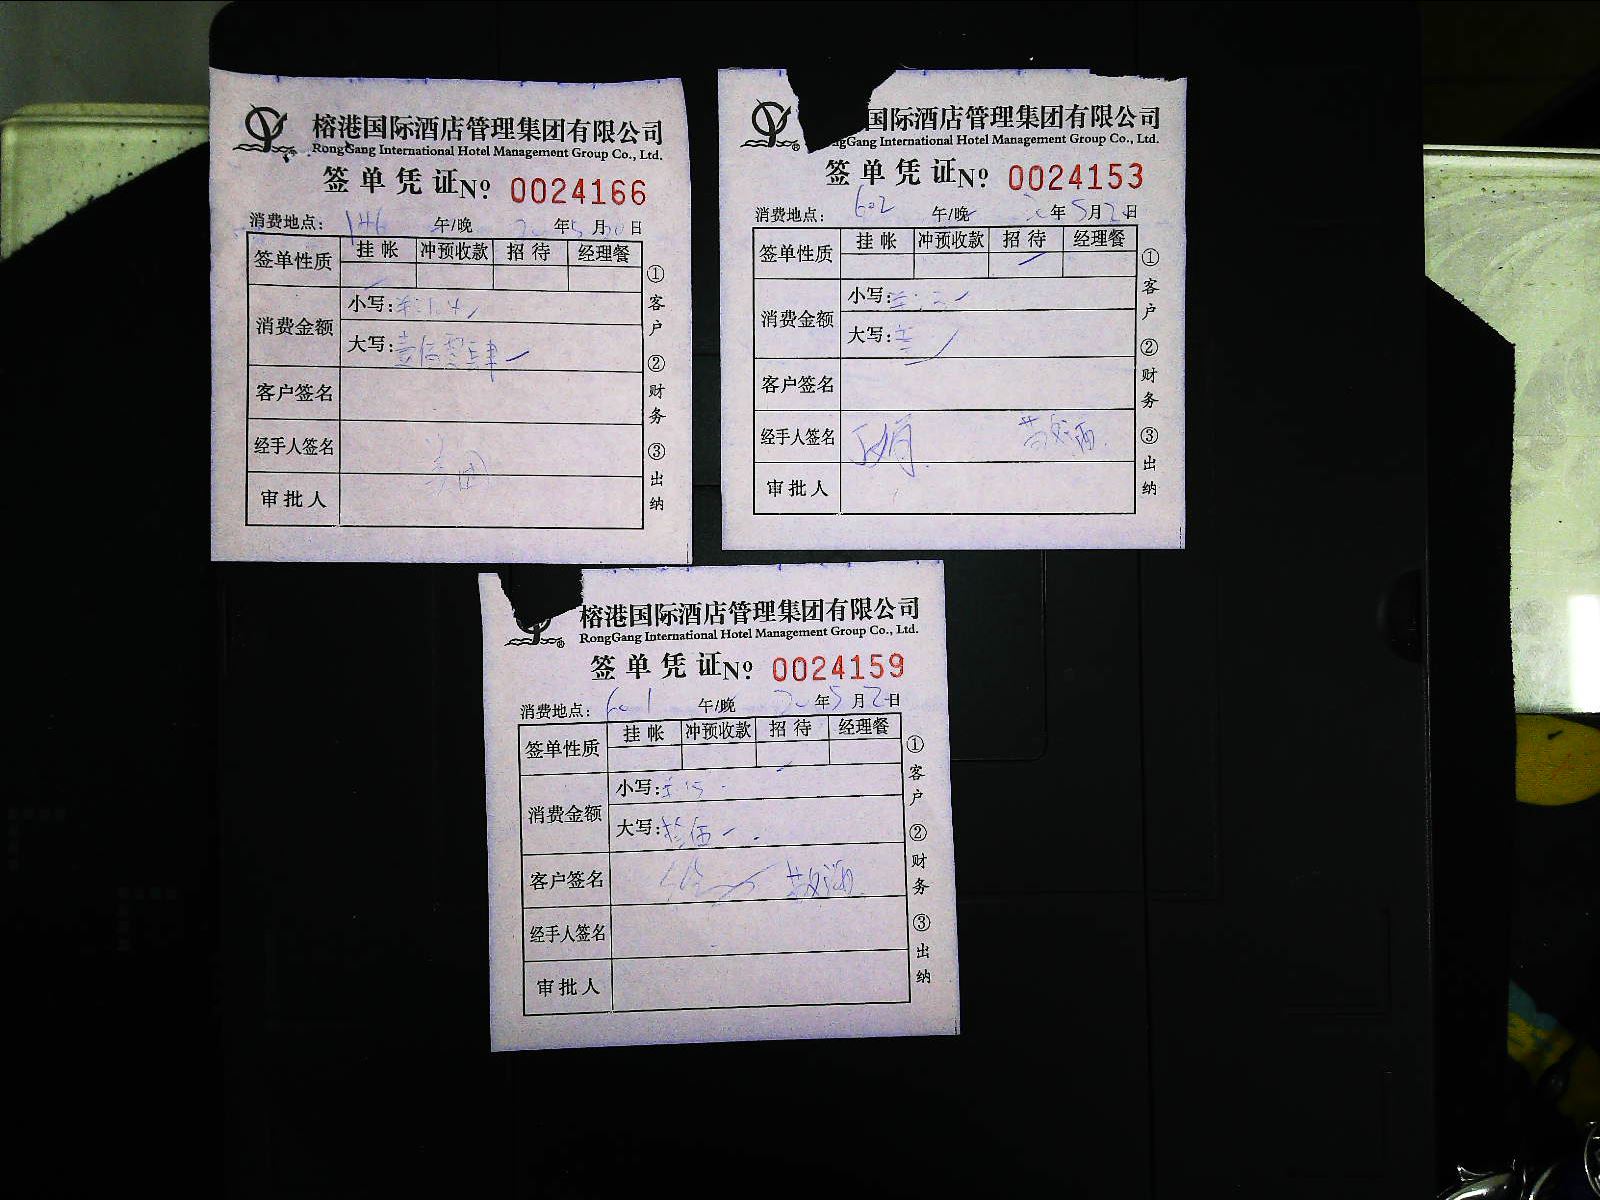 榕港国际酒店管理集团有限公司
RongGang International Hotel Management Group Co., Ltd.
签单凭证No. 0024166
消费地点: 午/晚 20年5月20日
签单性质 挂帐 冲预收款 招待 经理餐
消费金额 小写: 104
大写: 壹佰零肆
客户签名
经手人签名
美团
审批人
①客户 ②财务 ③出纳
国际酒店管理集团有限公司
gGang International Hotel Management Group Co., Ltd.
签单凭证No. 0024153
消费地点: 602 午/晚 20年5月2日
签单性质 挂帐 冲预收款 招待 经理餐
消费金额 小写:
大写:
客户签名
经手人签名
审批人
①客户 ②财务 ③出纳
榕港国际酒店管理集团有限公司
RongGang International Hotel Management Group Co., Ltd.
签单凭证No. 0024159
消费地点: 601 午/晚 20年5月2日
签单性质 挂帐 冲预收款 招待 经理餐
消费金额 小写: 15
大写: 拾伍
客户签名
经手人签名
审批人
①客户 ②财务 ③出纳